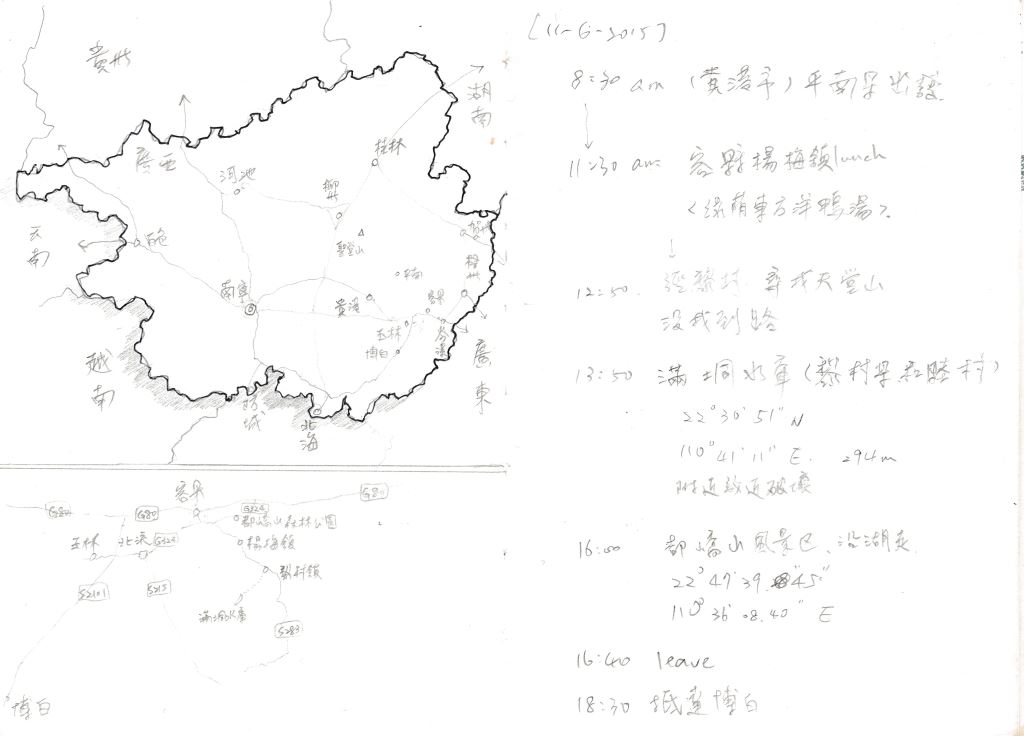 貴州
湖南
廣西
桂林
河池
柳州
賀州
聖堂山
云南
百色
梧州
平南
南寧
貴港
容县
玉林
岑溪
博白
越南
廣東
防城
北海
容县
G80
G80
G324
G80
都嶠山森林公園
玉林
北流
G324
楊梅鎮
黎村鎮
S2101
S215
滿垌水庫
S283
博白
[11-6-2015]
8:30 am (貴港市) 平南县出發
11:30 am 容縣楊梅鎮lunch
<綠蔭東方洋鴨湯>.
12:50. 經黎村 尋找天堂山
沒找到路
13:50 滿垌水庫 (黎村县和睦村)
22° 30' 51" N
110° 41' 11" E. 294m
附近
破壞
16:00 都嶠山風景区、沿湖
22° 47' 39. 45"
110° 36' 08.40" E
16:40 leave
18:30 抵達博白